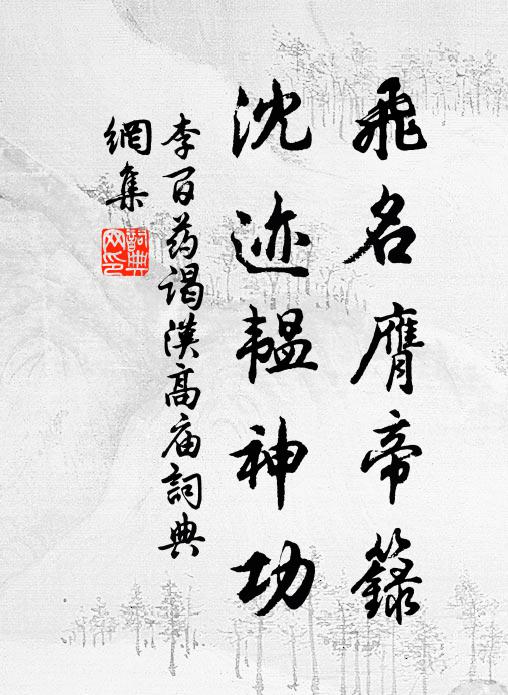 飛名膺帝籙
沈迹韞神功
李百药謁漢高庙詞典
網集
詞典
网印